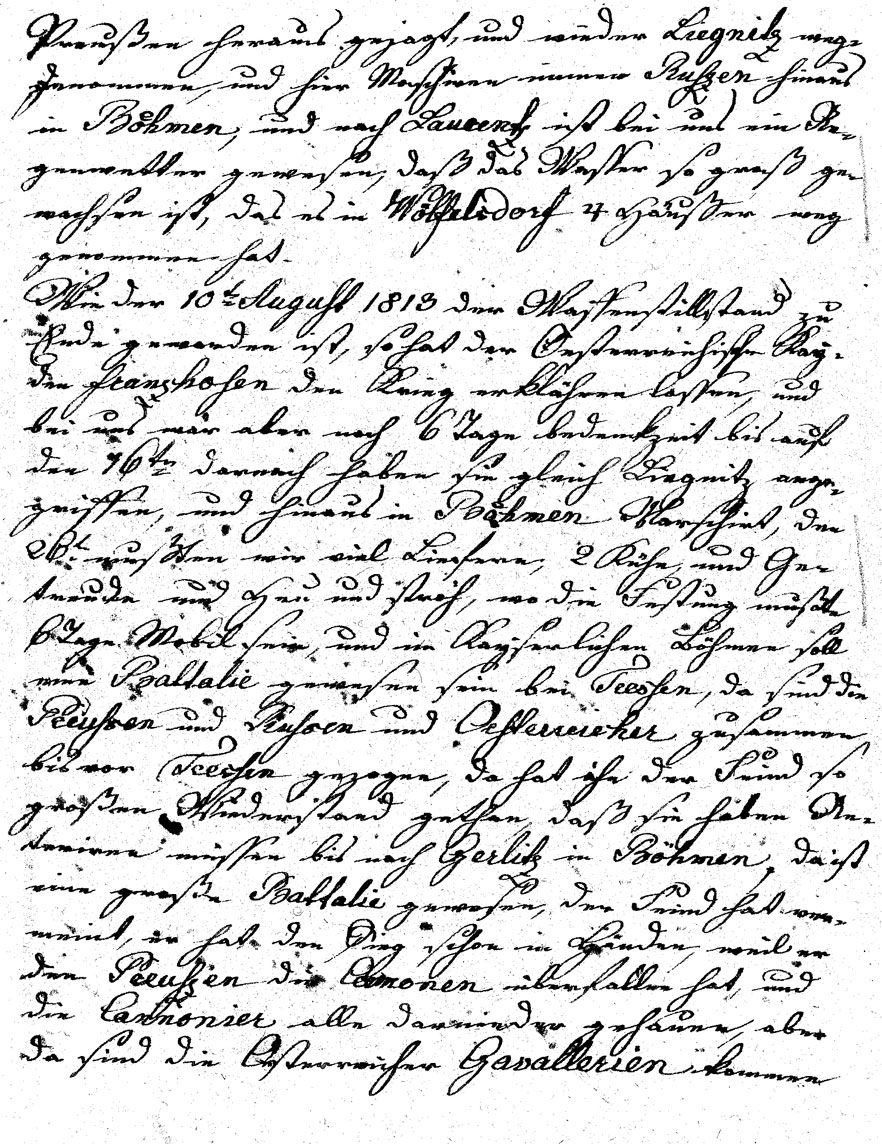 Preußen heraus gejagt, und wieder Liegnitz weg-
genommen, und hier Maschiren immer Rußen hinaus
in Böhmen, und nach Laurentz ist bei uns ein Re-
genwetter gewesen, daß das Wasser so groß ge-
wachsen ist, das es in Wölfelsdorf 4 Häußer weg
genommen hat.
Wie der 10t August 1813 der Waffenstillstand zu
Ende geworden ist, so hat der Oesterreichische Kay-
den franzhosen den Krieg erklähren lassen, und
bei uns war aber noch 6 Tage bedenkzeit bis auf
den 16tn darnach haben sie gleich Liegnitz ange-
griffen, und hinaus in Böhmen Marschirt, den
26t mußten wir viel Liefern, 2 Kühe, und Ge-
treude und Heu und stroh, wo die Festung mußte
6 Tage Mobil sein, und im Kayserlichen Böhmen soll
eine Baltalie gewesen sein bei Treesen, da sind die
Preussen und Russen und Oesterreicher zusammen
bis vor Treesen gezogen, da hat ihn der Feind so
großen Wiederstand gethan, daß sie haben Re-
teriren müssen bis nach Gerlitz in Böhmen, da ist
eine große Baltalie gewesen, der Feind hat ver-
meint, er hat den Sieg schon in Händen, weil er
den Preußen die Canonen überfallen hat, und
die Cannonier alle darnieder gehauen, aber
da sind die Oesterreicher Gavallerien kommen